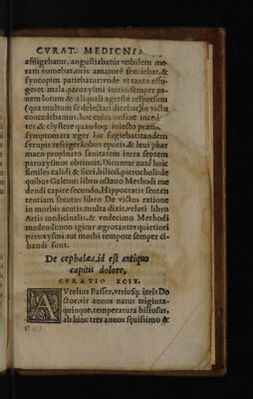 CVRAT. MEDICIN
affligebatur, angustiabatur
ram vomebat, oris amarorē sentiebat, &
syncopim patiebatur: vnde vt tanta effu-
geret mala, paroxysmi initio, semper pa-
nem lotum & aliqua agresta respersum
(qua multum se delectari dicebat) in victu
concedebamus, hoc enim ordine inceden
tes, & clystere quandoq; iniecto
symptomata æger hic fugiebat: tandem
syrupis refrigerātibus epotis, & leui phar
maco propinato sanitatem intra septem
paroxysmos obtinuit. Dicuntur autē huic
similes calidi & sicci, biliosi, picrocholi: de
quibus Galenus libro octauo Methodi me
dendi capite secundo, Hippocratis senten
tentiam secutus libro De victus ratione
in morbis acutis, multa dixit, veluti libro
Artis medicinalis, & vndecimo Methodi
medendi: non igitur ægrotantes quietiori
paroxysmi aut morbi tempore semper ci-
bandi sunt.
De cephalæa, id est antiquo
capitis dolore,
CVRATIO XCIX.
AVrelius Passer, vtriusq; iuris Do
ctor, vir annos natus triginta-
quinque, temperatura biliosus,
ab hinc tres annos &